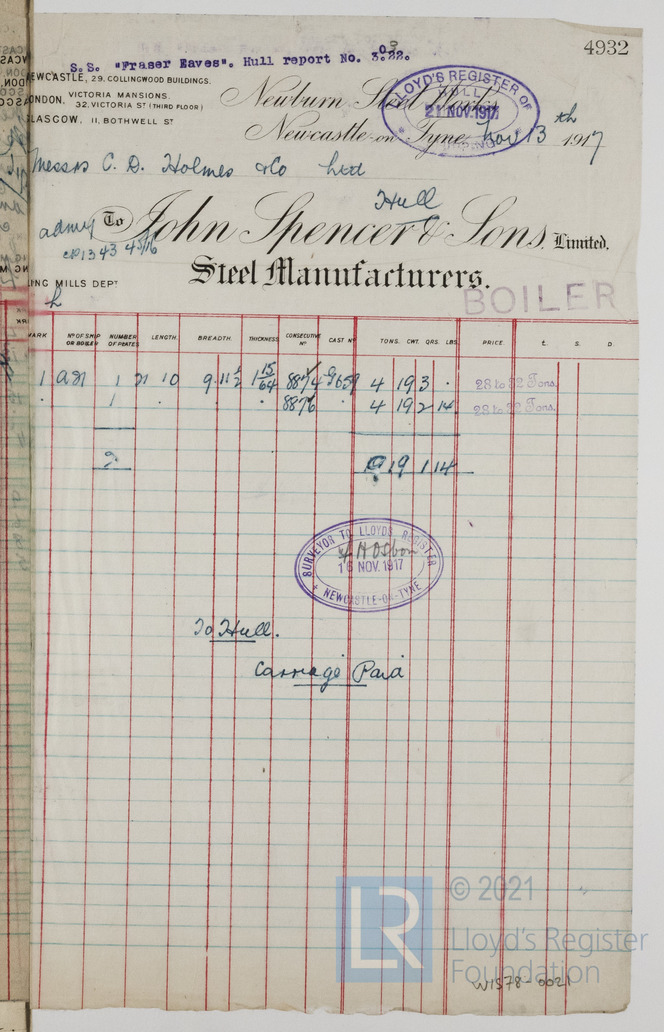 4932
S.S. "Fraser Eaves". Hull report No. 3.22.
NEWCASTLE, 29, COLLINGWOOD BUILDINGS.
LONDON, VICTORIA MANSIONS,
32, VICTORIA ST (THIRD FLOOR)
GLASCOW, 11, BOTHWELL ST
LLOYD'S REGISTER OF
HULL
21 NOV. 1917
SHIPPING
Newburn Steel Works,
Newcastle-on-Tyne, Nov 13th 1917
Messrs C. D. Holmes & Co Ltd
Hull
To John Spencer & Sons, Limited.
Steel Manufacturers.
ROLLING MILLS DEPT
BOILER
MARK No OF SHIP OR BOILER NUMBER OF PLATES LENGTH. BREADTH. THICKNESS CONSECUTIVE No CAST No TONS. CWT. QRS. LBS. PRICE. £. S. D.
1 1 21 10 9. 11½ 1 15/64 8874 9659 4 19 3 . 28 to 32 Tons.
. 1 . . . 8876 4 19 2 14 28 to 32 Tons.
2 9 19 1 14
SURVEYOR TO LLOYDS REGISTER
16 NOV. 1917
NEWCASTLE-ON-TYNE
To Hull.
Carriage Paid
© 2021
LR Lloyd's Register
Foundation
W1578-0021